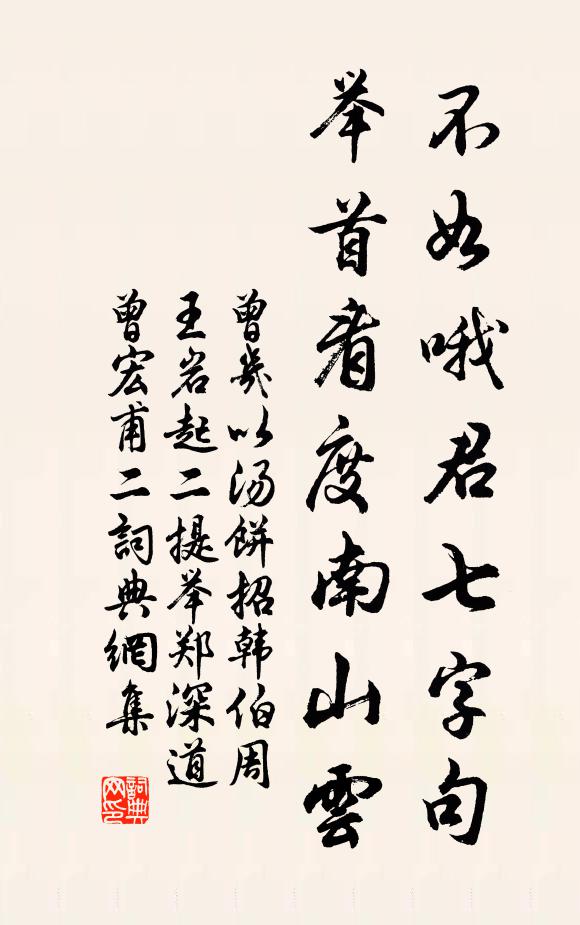 不如哦君七字句
举首看度南山雲
曾幾以汤餅招韩伯周
王岩起二提举郑深道
曾宏甫二詞典網集
詞典
网印